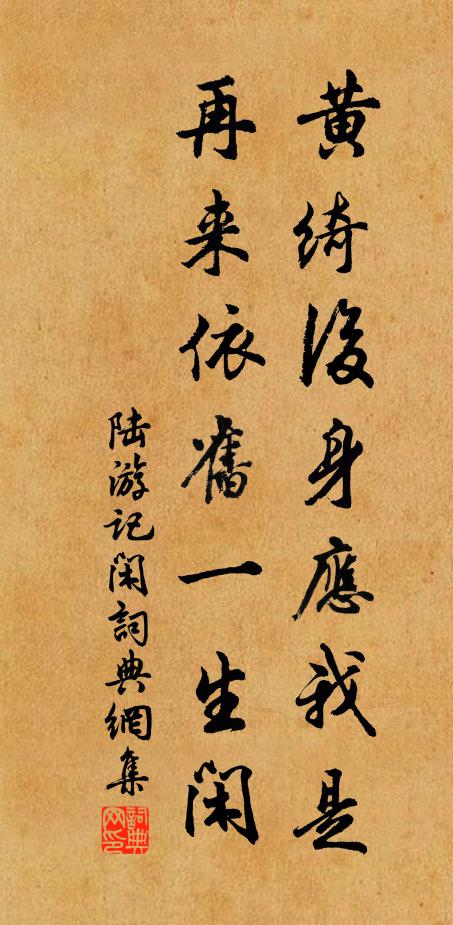 黄綺後身應我是
再来依舊一生閑
陆游记闲詞典網集
詞典
网印